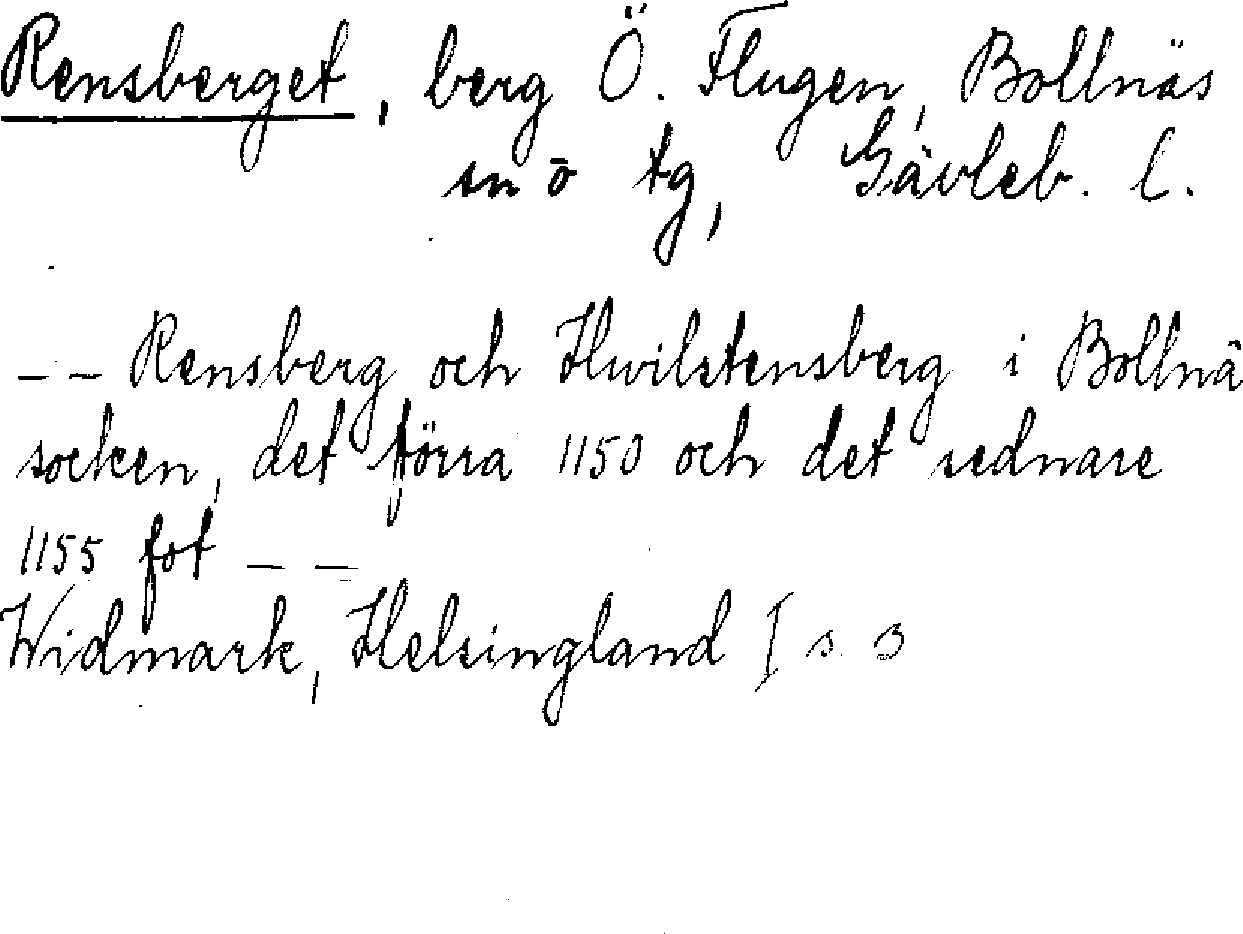 Rensberget, berg Ö. Flugen, Bollnäs
sn o tg, Gävleb. l.
– – Rensberg och Hwilstensberg i Bollnä
socken, det förra 1150 och det sednare
1155 fot – –
Widmark, Helsingland I s. 3